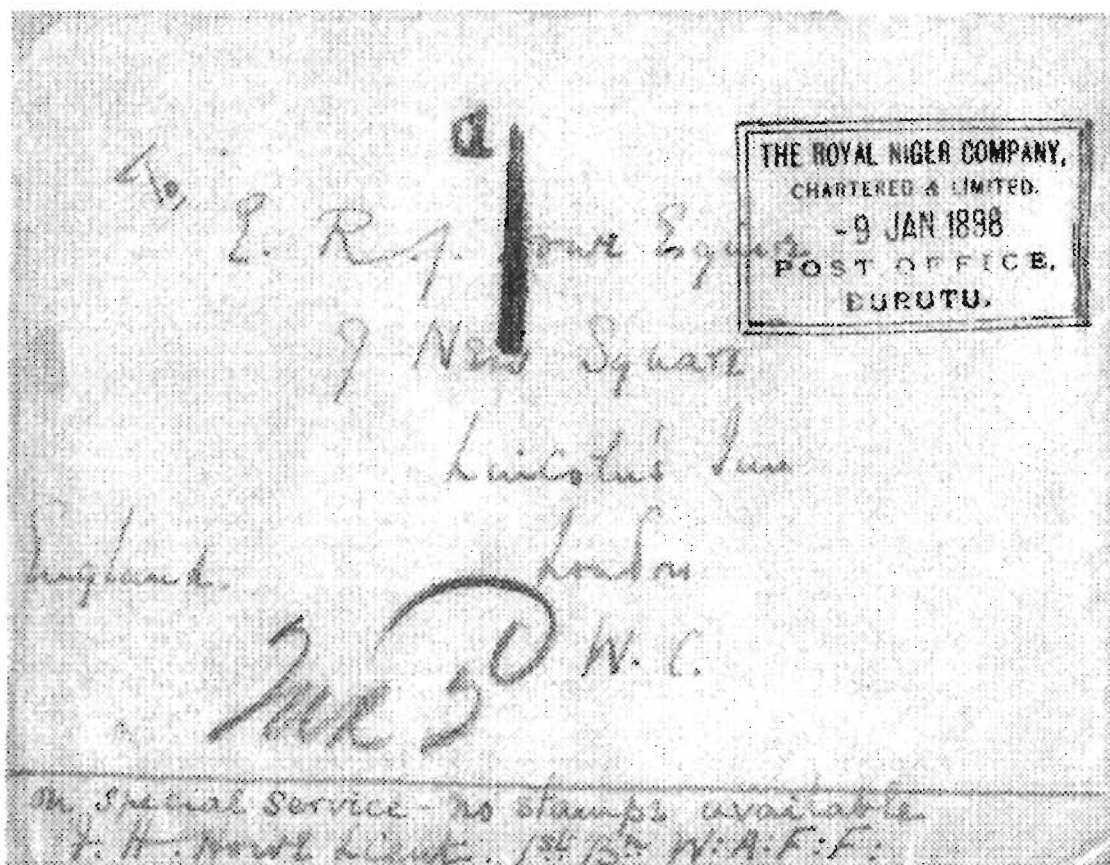 THE ROYAL NIGER COMPANY,
CHARTERED & LIMITED.
-9 JAN 1898
POST OFFICE,
BURUTU.
d
1
To,
E. R.
9 New Square
Lincoln's Inn
London
W. C.
England.
on special service - no stamps available
F. H. Lieut. 1st Bn W.A.F.F.